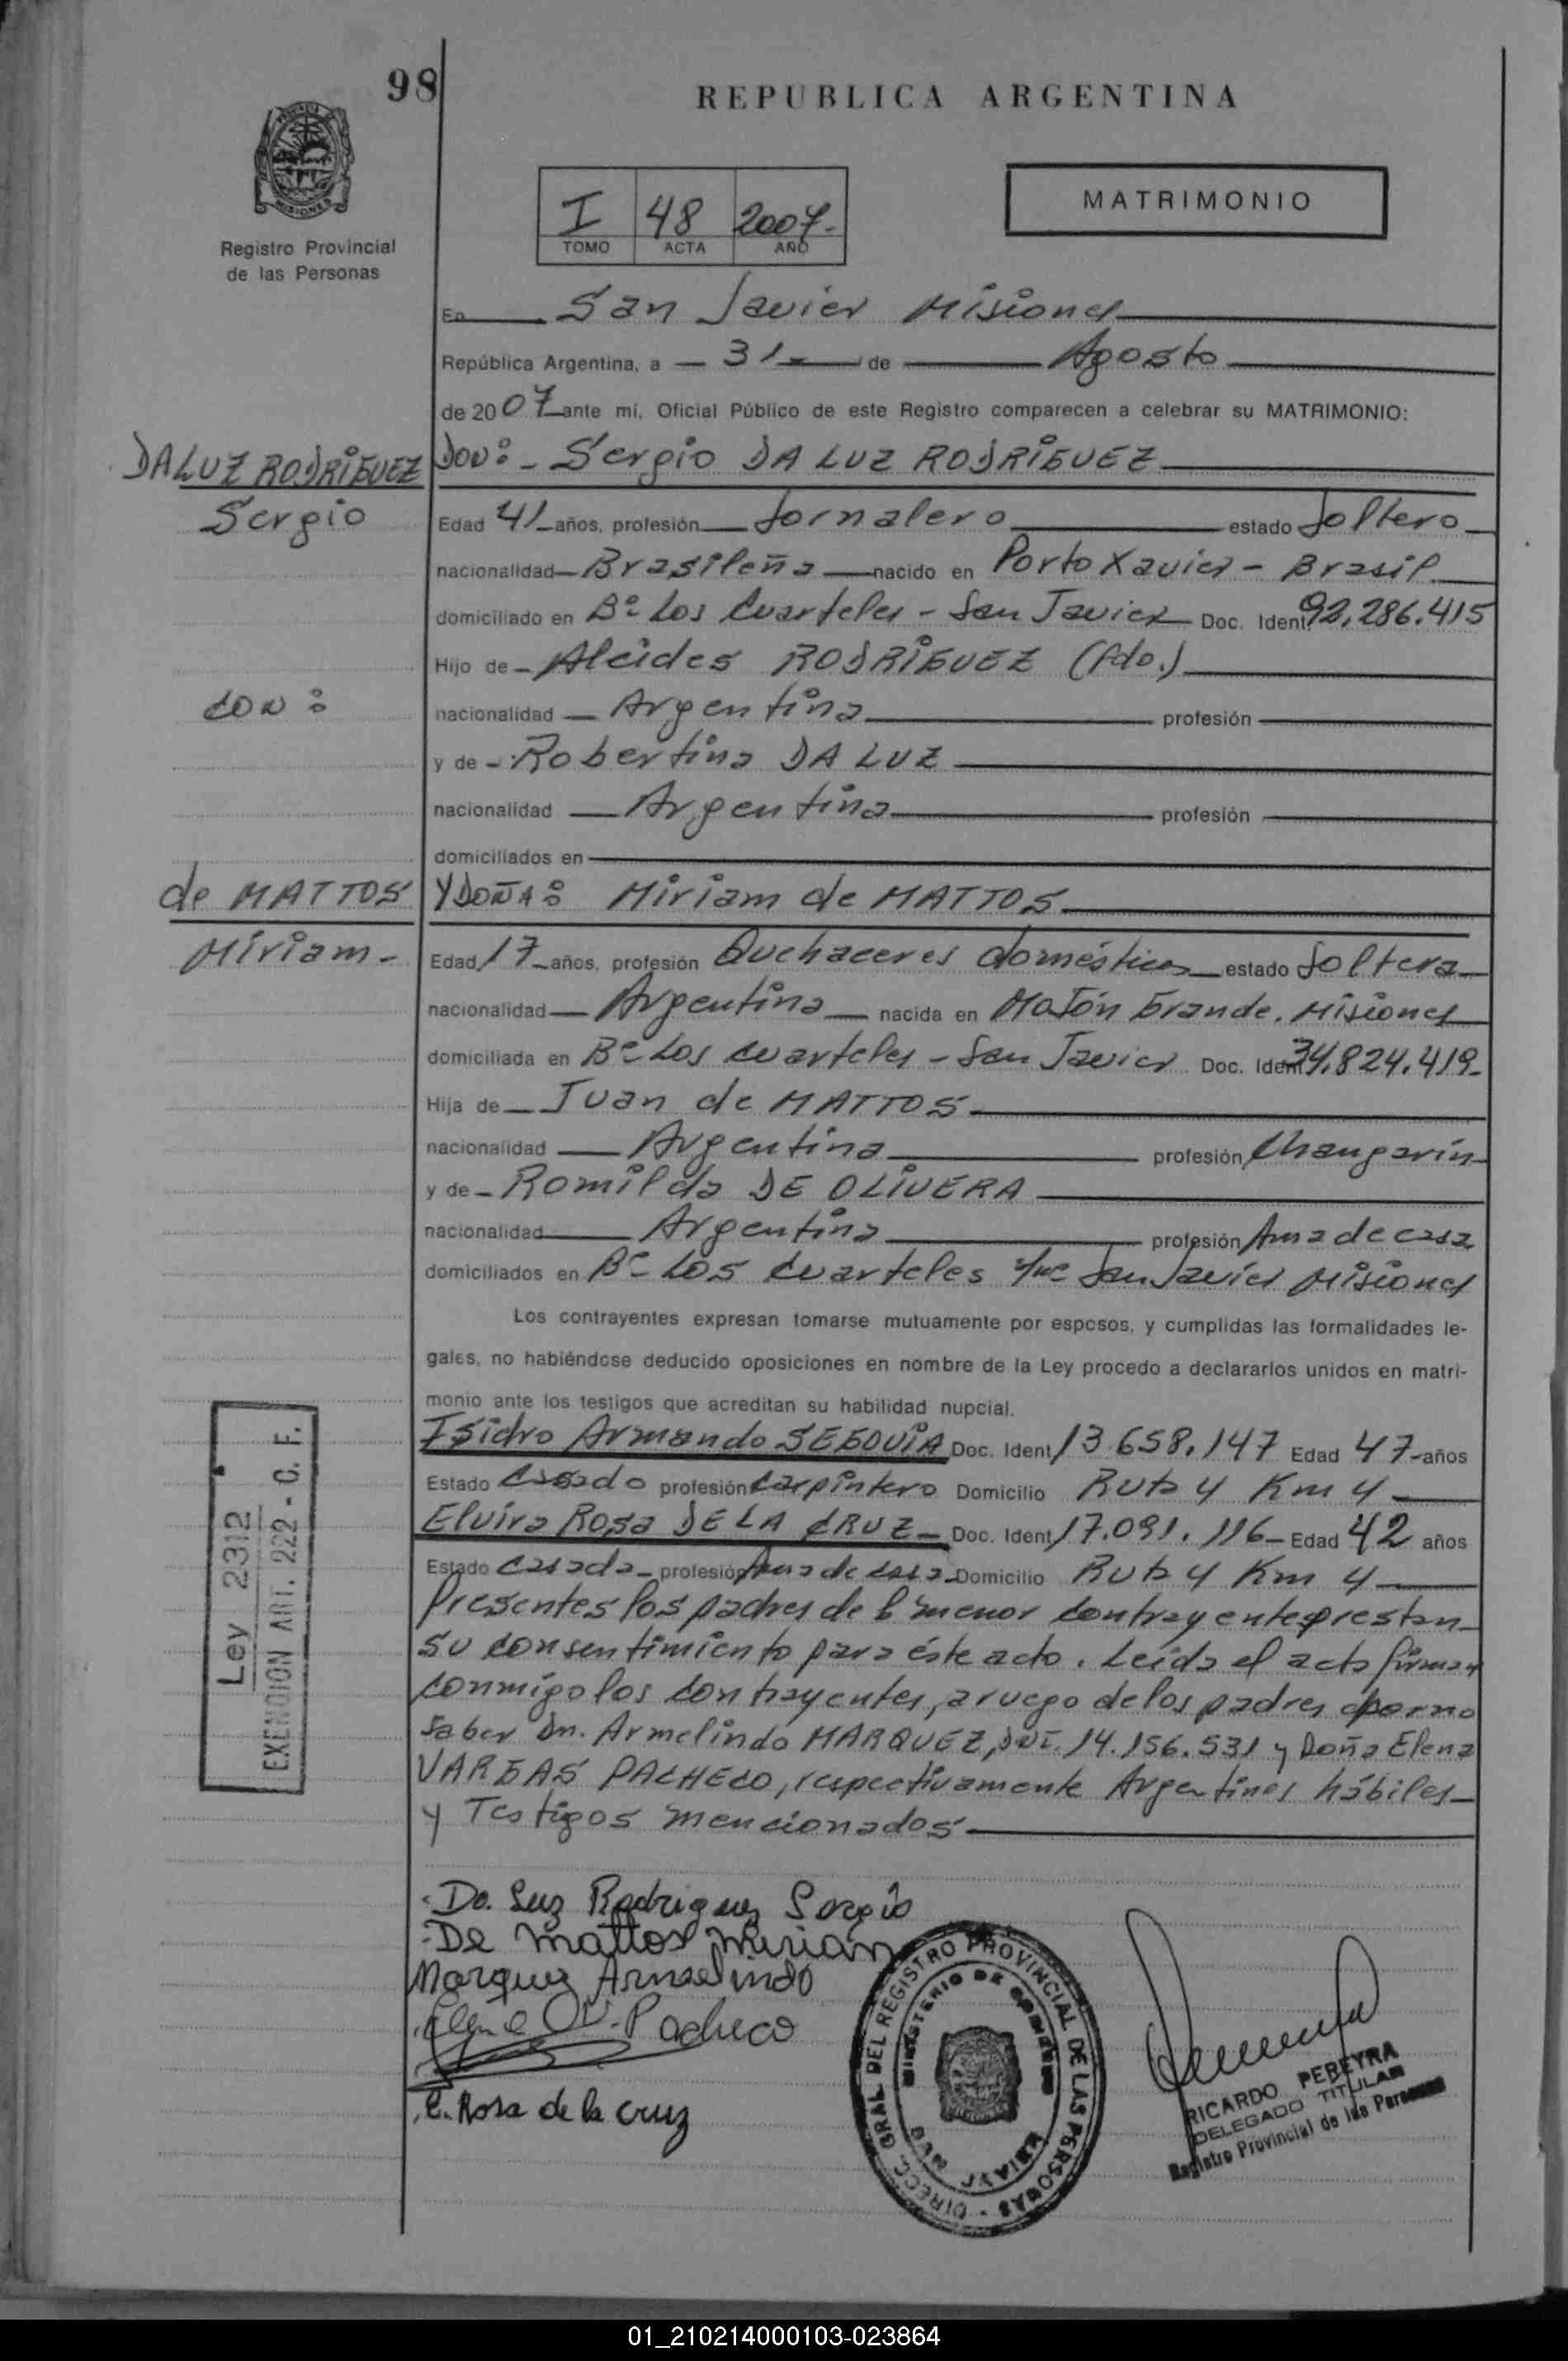 98
REPUBLICA ARGENTINA
MISIONES
Registro Provincial
de las Personas
I 48 2007.-
TOMO ACTA AÑO
MATRIMONIO
En San Javier Misiones
República Argentina, a 31 de Agosto
de 2007 ante mí, Oficial Público de este Registro comparecen a celebrar su MATRIMONIO:
DA LUZ RODRIGUEZ
Sergio
DON:- Sergio DA LUZ RODRIGUEZ
Edad 41 años, profesión Jornalero estado Soltero
nacionalidad Brasileña nacido en Porto Xavier - Brasil
domiciliado en B° Los Cuarteles - San Javier Doc. Ident. 92.286.415
Hijo de Alcides RODRIGUEZ (fdo.)
CON:
nacionalidad Argentina profesión
y de Robertina DA LUZ
nacionalidad Argentina profesión
domiciliados en
de MATTOS
Miriam-
Y DOÑA: Miriam de MATTOS
Edad 17 años, profesión Quehaceres domésticos estado Soltera
nacionalidad Argentina nacida en Mojón Grande. Misiones
domiciliada en B° Los Cuarteles - San Javier Doc. Ident. 34.824.419-
Hija de Juan de MATTOS
nacionalidad Argentina profesión Changarín
y de Romilda DE OLIVERA
nacionalidad Argentina profesión Ama de casa
domiciliados en B° Los Cuarteles San Javier Misiones
Los contrayentes expresan tomarse mutuamente por esposos, y cumplidas las formalidades le-
gales, no habiéndose deducido oposiciones en nombre de la Ley procedo a declararlos unidos en matri-
monio ante los testigos que acreditan su habilidad nupcial.
Isidro Armando SEGOVIA Doc. Ident. 13.658.147 Edad 47 años
Estado Casado profesión Carpintero Domicilio Ruta 4 Km 4
Elvira Rosa DE LA CRUZ Doc. Ident. 17.091.116 Edad 42 años
Estado Casada profesión Ama de casa Domicilio Ruta 4 Km 4
Presentes los padres de la menor contrayente prestan
su consentimiento para éste acto. Leída el acta firman
conmigo los contrayentes, a ruego de los padres por no
saber Dn. Armelindo MARQUEZ, DNI. 14.156.531 y Doña Elena
VARGAS PACHECO, respectivamente Argentinos hábiles
y Testigos mencionados
Ley 2312
EXENCION ART. 222 - C. F.
Da Luz Rodriguez Sergio
De Mattos Mirian
Marquez Armelindo
Elena V. Pacheco
E. Rosa de la Cruz
DIRECC. GRAL DEL REGISTRO PROVINCIAL DE LAS PERSONAS
MINISTERIO DE GOBIERNO
SAN JAVIER
RICARDO PEREYRA
DELEGADO TITULAR
Registro Provincial de las Personas
01_210214000103-023864